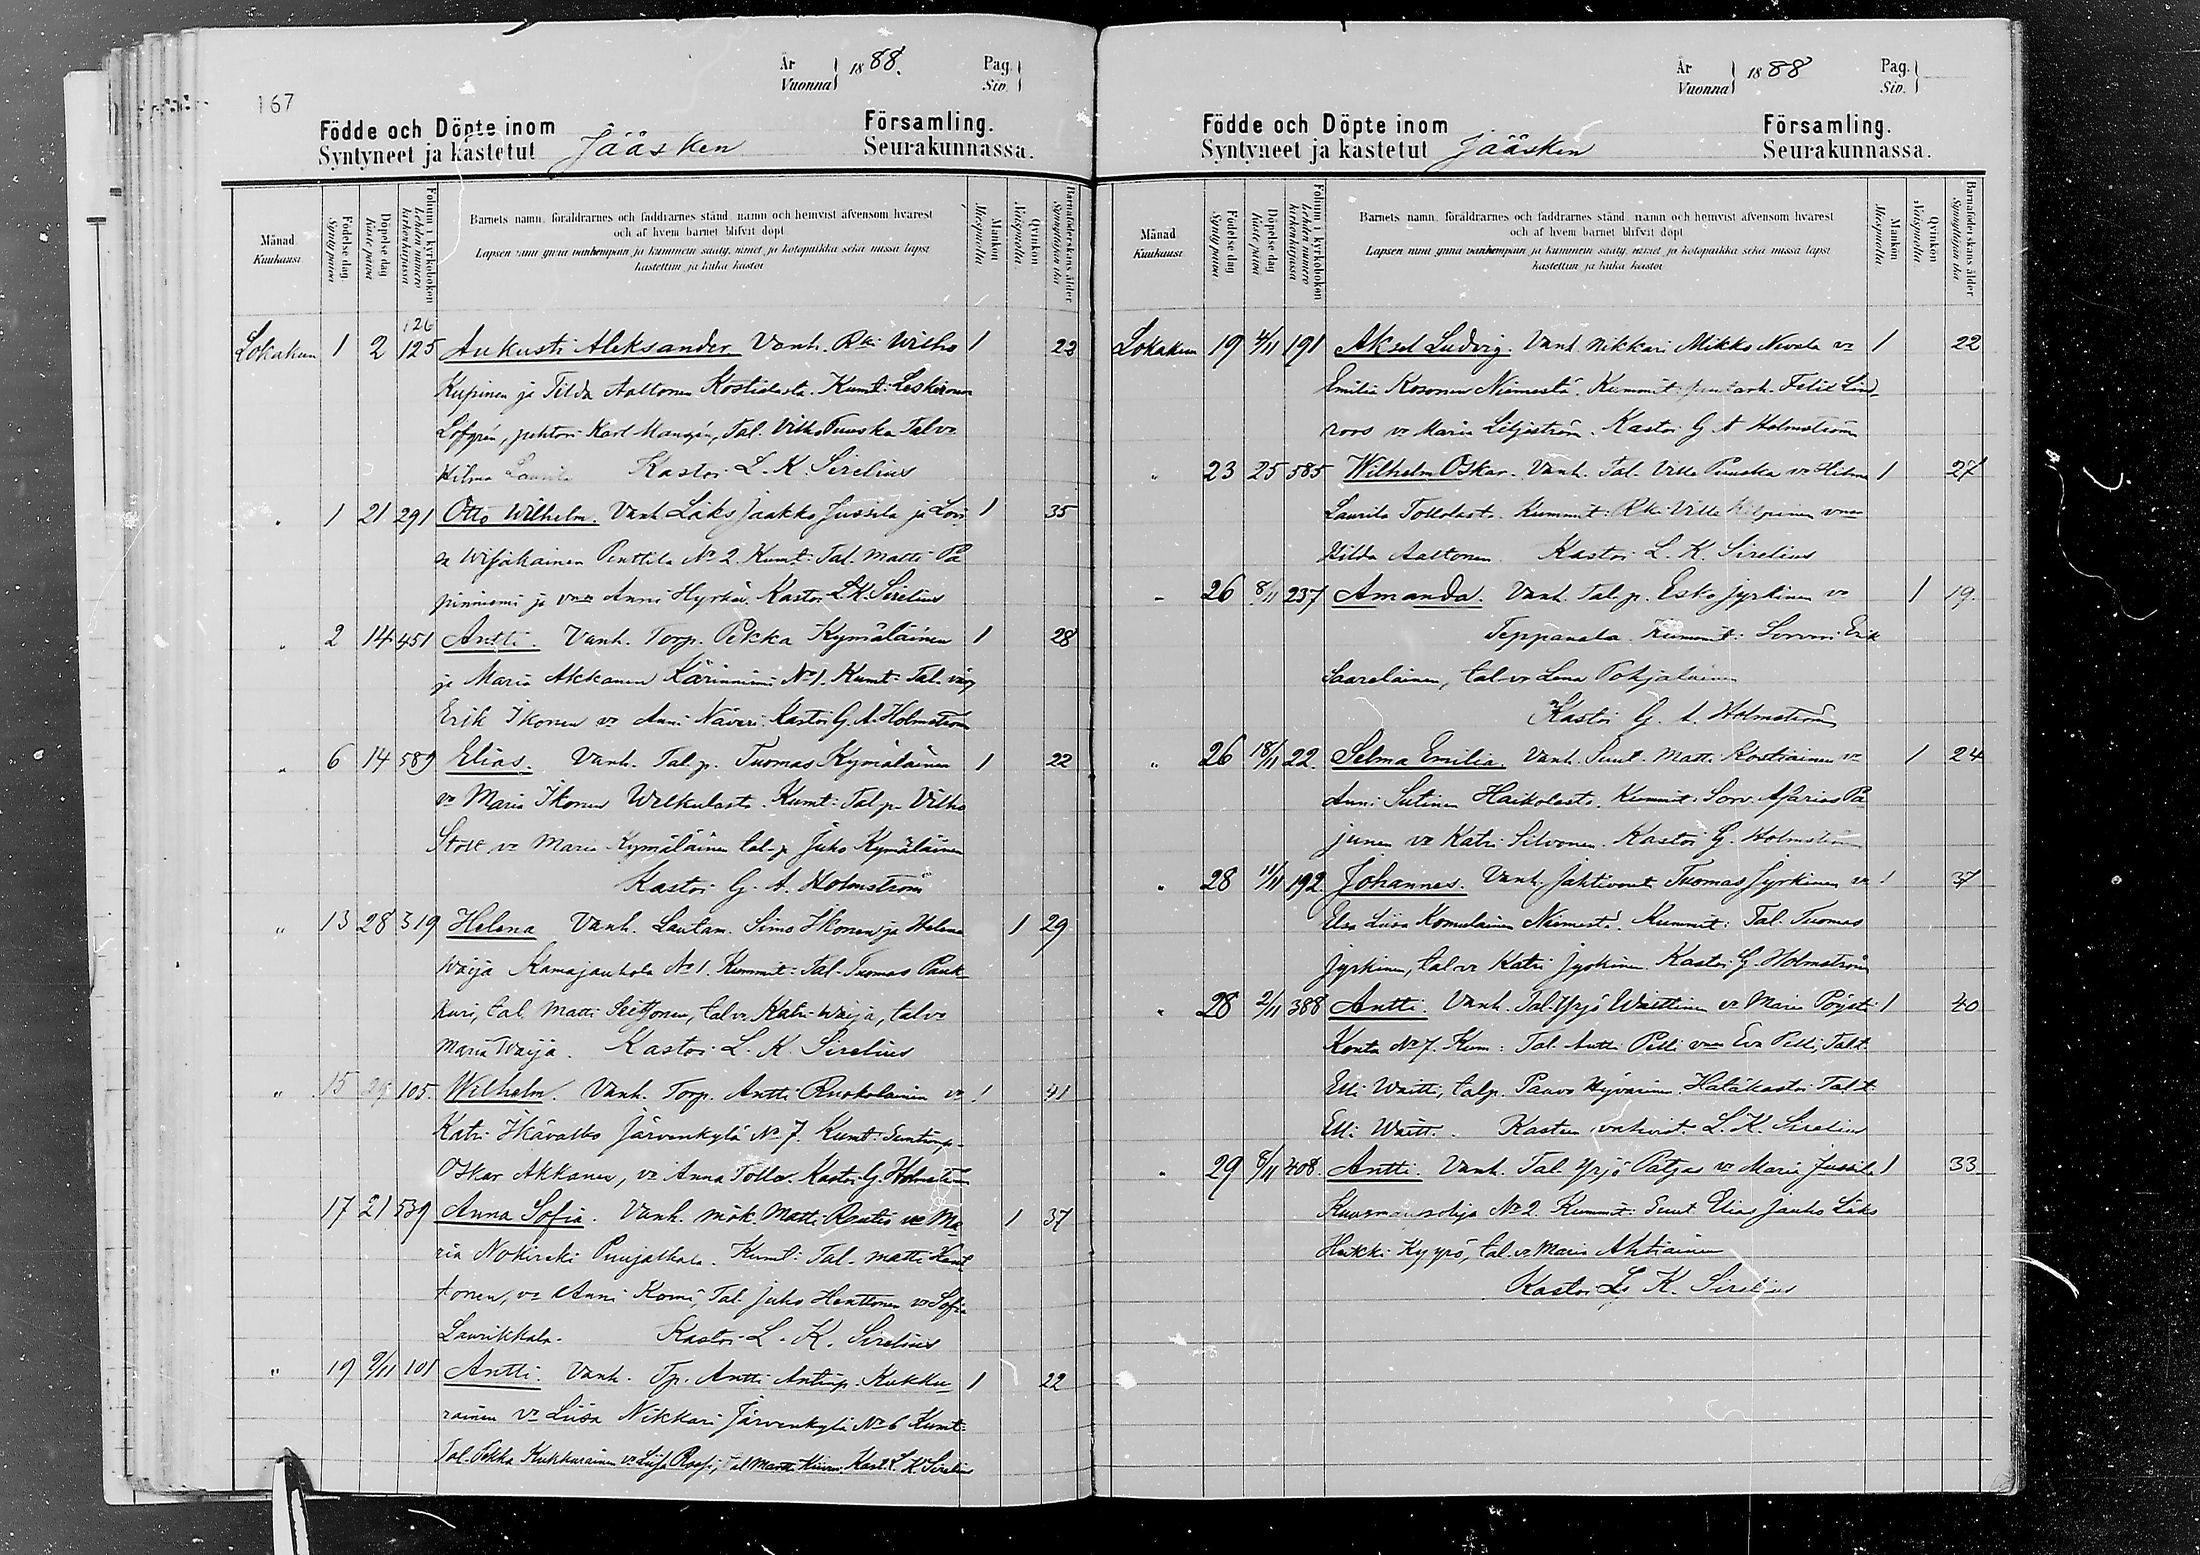 167
År
Vuonna 1888.
Pag.
Siv.
Födde och Döpte inom
Syntyneet ja kastetut
Jääsken
Församling.
Seurakunnassa.
Månad
Kuukausi
Födelse dag
Syntypäivä
Döpelse dag
Kaste päivä
Folium i kyrkoboken
Lehden numero kirkonkirjassa
Barnets namn, föräldrarnes och faddrarnes stånd, namn och hemvist äfvensom hvarest
och af hvem barnet blifvit döpt
Lapsen nimi ynnä vanhempain ja kummein sääty, nimet ja kotopaikka sekä missä lapsi
kastettiin ja kuka kastoi
Mankön
Miespuolta
Qvinkön
Naispuolta
Barnaföderskans ålder
Synnyttäjän ikä
126
Lokakuu 1 2 125 Aukusti Aleksander Vanh. Rki Wilho 1 22
Kilpinen ja Tilda Aaltonen Kostialasta. Kumt: Leskirouva
Lofgrén, puhtori Karl Mangén, Tal. Vilho Puuska Talvo
Hilma Laurila Kastoi L. K. Sirelius
" 1 21 291 Otto Wilhelm. Vanh. Läks Jaakko Jussila ja Lovi 1 35
sa Wisakainen Penttilä No 2. Kumt: Tal. Matti Pa
pinniemi ja vmo Anni Hyrkäs. Kastoi L K. Sirelius
" 2 14 451 Antti. Vanh. Torp. Pekka Kymäläinen 1 28
ja Maria Akkanen Kärinniemi No 1. Kumt: Tal. väv
Erik Ikonen vo Anni Näveri. Kastoi G. A. Holmström
" 6 14 589 Elias. Vanh. Tal. p. Tuomas Kymäläinen 1 22
vo Maria Ikonen Welkulasta. Kumt: Tal p. Vilho
Stolt vo Maria Kymäläinen tal. p. Juho Kymäläinen
Kastoi G. A. Holmström
" 13 28 319 Helena Vanh. Lautam. Simo Ikonen ja Helena 1 29
Waija Kamajauhola No 1. Kummit: Tal. Tuomas Pauk-
kuri, tal. Matti Seittonen, tal vo Katri Waija, tal vo
Maria Waija. Kastoi L. K. Sirelius
" 15 29 105. Wilhelm. Vanh. Torp. Antti Ruokolainen vo 1 41
Katri Ikävalko Järvenkylä No 7. Kumt:
Oskar Akkanen, vo Anna Tolla. Kastoi G. Holmström
17 21 539 Anna Sofia. Vanh. mök. Matti Rautio vo Ma 1 37
ria Nokireki Puujalkala. Kumt: Tal. Matti Hent
tonen, vo Anni Komi, Tal. Juho Henttonen vo Sofia
Laurikkala. Kastoi L. K. Sirelius
" 19 9/11 101 Antti. Vanh. Tp. Antti Antinp. Kukku- 1 22
rainen vo Liisa Nikkari Järvenkylä No 6 Kumt:
Tal. Pekka Kukkurainen vo Liisa Raasi, tal Matti Kiuru. Kast. L. K. Sirelius
År
Vuonna 1888
Pag.
Siv.
Födde och Döpte inom
Syntyneet ja kastetut
Jääsken
Församling.
Seurakunnassa.
Månad
Kuukausi
Födelse dag
Syntypäivä
Döpelse dag
Kaste päivä
Folium i kyrkoboken
Lehden numero kirkonkirjassa
Barnets namn, föräldrarnes och faddrarnes stånd, namn och hemvist äfvensom hvarest
och af hvem barnet blifvit döpt
Lapsen nimi ynnä vanhempain ja kummein sääty, nimet ja kotopaikka sekä missä lapsi
kastettiin ja kuka kastoi
Mankön
Miespuolta
Qvinkön
Naispuolta
Barnaföderskans ålder
Synnyttäjän ikä
Lokakuu 19 4/11 191 Aksel Ludvig. Vanh. Nikkari Mikko Nevala vo 1 22
Emilia Kosonen Niemestä. Kummit: Felix Lind
roos vo Maria Liljeström. Kastoi G A Holmström
" 23 25 585 Wilhelm Oskar. Vanh. Tal. Ville Puuska vo Hilma 1 27
Laurila Tollolasta. Kummit: Rki Ville Kilpinen vmo
Hilda Aaltonen. Kastoi L. K. Sirelius
" 26 8/11 237 Amanda. Vanh. Tal. p. Esko Jyrkinen vo 1 19.
Teppanala. Kummit: Sorvari Erik
Saarelainen, tal. vo Lena Pohjalainen
Kastoi G. A. Holmström
" 26 18/11 22. Selma Emilia. Vanh. Suut. Matti Kostiainen vo 1 24
Anni Sutinen Haikolasta. Kummit: Sorv. Asarias Pa
junen vo Katri Silvonen. Kastoi G. Holmström
" 28 11/11 192. Johannes. Vanh. Jahtivout Tuomas Jyrkinen vo 1 37
Elsa Liisa Komulainen Niemestä. Kummit: Tal. Tuomas
Jyrkinen, tal vo Katri Jyrkinen. Kastoi G. Holmström
" 28 2/11 388 Antti. Vanh. Tal. Yrjö Waittinen vo Maria Pöysti 1 40
Konta No 7. Kum: Tal. Antti Pelli vmo Eva Pelli, Tal t.
Elli Waitti, tal p. Paavo Hyvärinen. Hätäkastoi Tal. t.
Elli Waitt. Kasteen vahvist. L. K. Sirelius
" 29 8/11 408. Antti. Vanh. Tal. Yrjö Patjas vo Maria Jussila 1 33
Kuurmanpohja No 2. Kummit: Suut Elias Jauho Läks
Heikki Kyyrö, tal. vo Maria Ahtiainen
Kastoi L. K. Sirelius